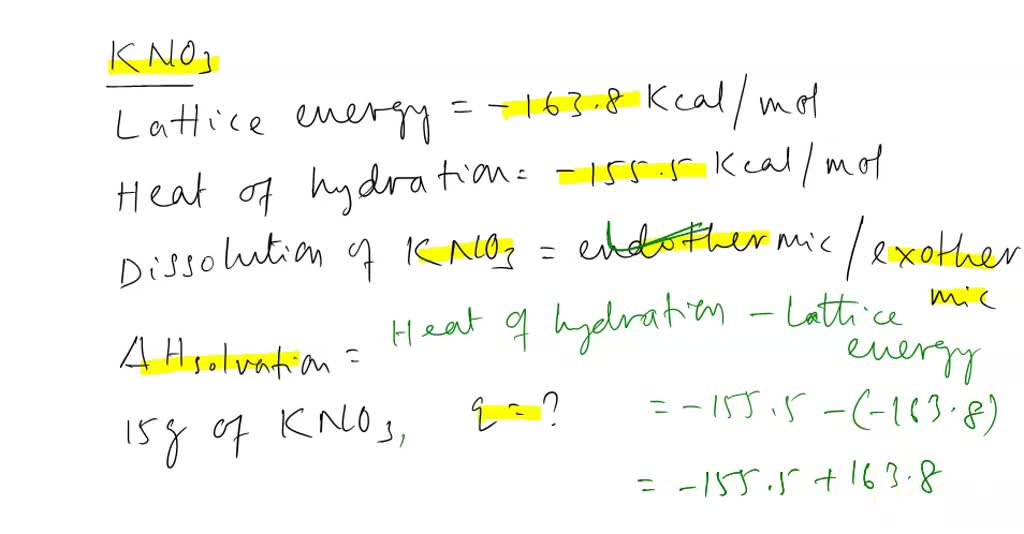 KNO3
Lattice energy = -163.8 Kcal/mol
Heat of hydration= -155.5 Kcal/mol
Dissolution of KNO3 = endothermic/exother
mic
ΔHsolvation = Heat of hydration - Lattice
energy
15g of KNO3, q = ? = -155.5 -(-163.8)
= -155.5 + 163.8